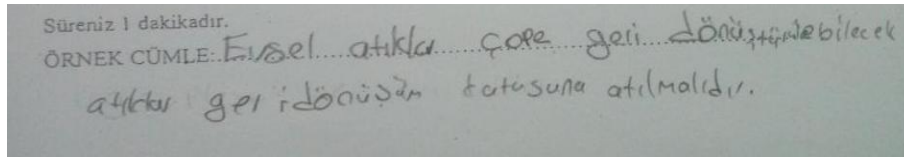 Süreniz 1 dakikadır.
ÖRNEK CÜMLE: Evsel atıklar çöpe geri dönüştürülebilecek
atıklar geri dönüşüm kutusuna atılmalıdır.